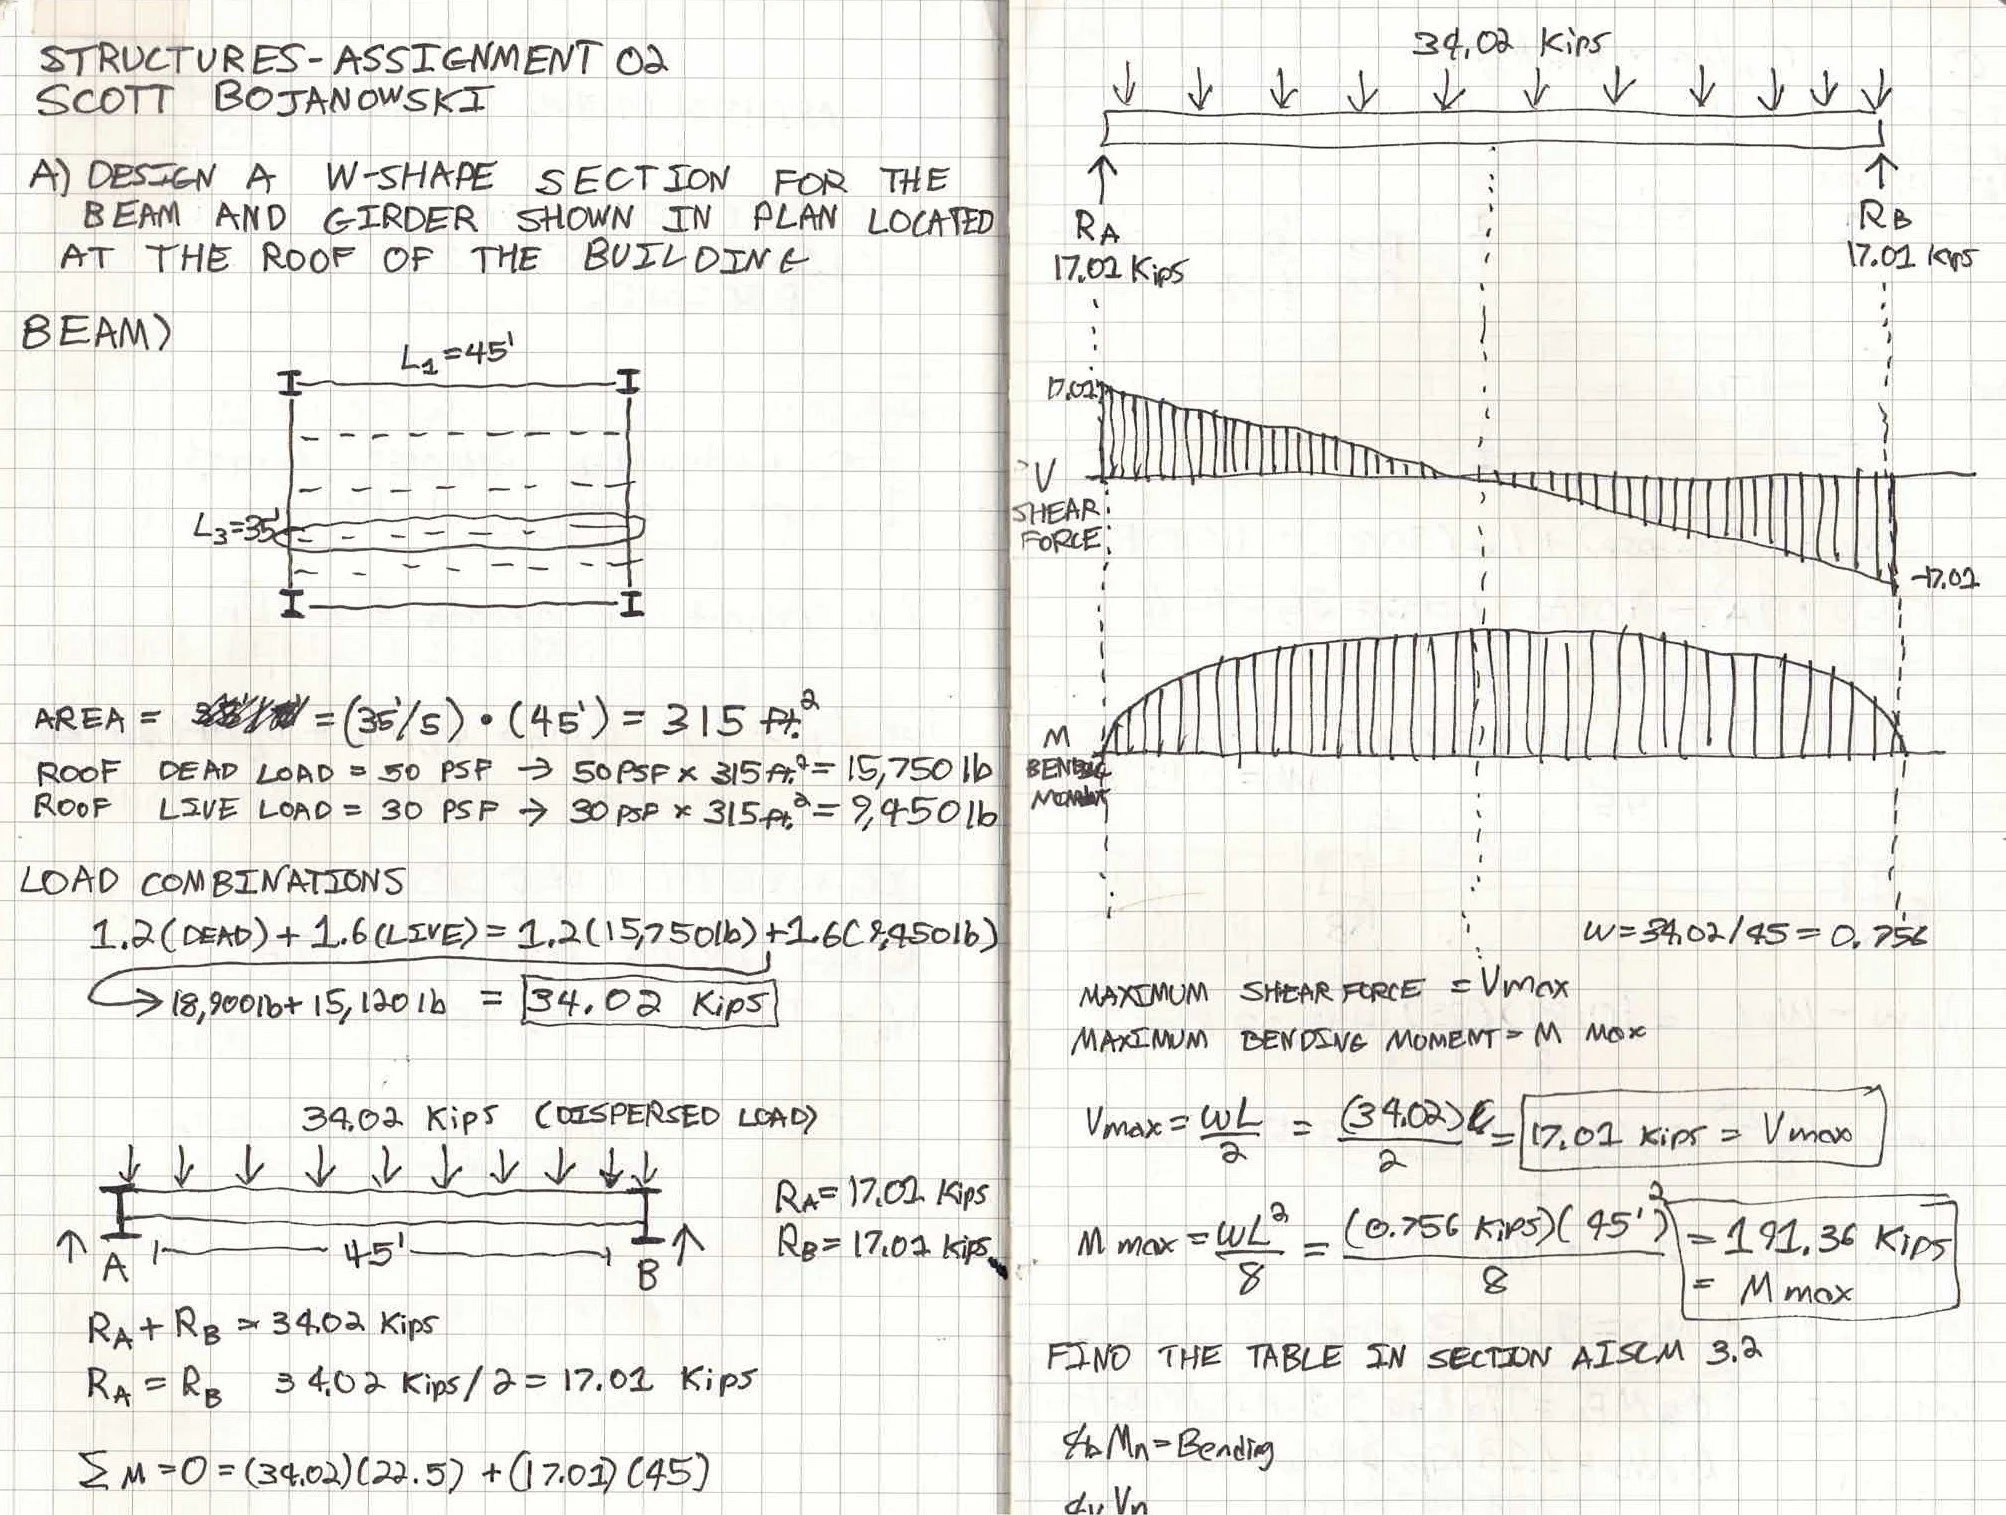 STRUCTURES-ASSIGNMENT 02
SCOTT BOJANOWSKI
A) DESIGN A W-SHAPE SECTION FOR THE
BEAM AND GIRDER SHOWN IN PLAN LOCATED
AT THE ROOF OF THE BUILDING
BEAM)
L1=45'
L3=35'
AREA = = (35'/5) • (45') = 315 ft.²
ROOF DEAD LOAD = 50 PSF → 50 PSF x 315 ft.² = 15,750 lb
ROOF LIVE LOAD = 30 PSF → 30 PSF x 315 ft.² = 9,450 lb
LOAD COMBINATIONS
1.2(DEAD) + 1.6(LIVE) = 1.2(15,750lb) + 1.6(9,450lb)
→ 18,900lb + 15,120 lb = 34.02 Kips
34.02 Kips (DISPERSED LOAD)
RA = 17.01 Kips
RB = 17.01 Kips
A 45' B
RA + RB = 34.02 Kips
RA = RB 34.02 Kips/2 = 17.01 Kips
ΣM = 0 = (34.02)(22.5) + (17.01)(45)
34.02 Kips
RA RB
17.01 Kips 17.01 Kips
17.01
V
SHEAR
FORCE
-17.01
M
BENDING
MOMENT
w = 34.02/45 = 0.756
MAXIMUM SHEAR FORCE = Vmax
MAXIMUM BENDING MOMENT = M max
Vmax = wL/2 = (34.02)/2 = 17.01 Kips = Vmax
M max = wL²/8 = (0.756 Kips)(45')²/8 = 191.36 Kips
= M max
FIND THE TABLE IN SECTION AISCM 3.2
ϕb Mn = Bending
ϕv Vn